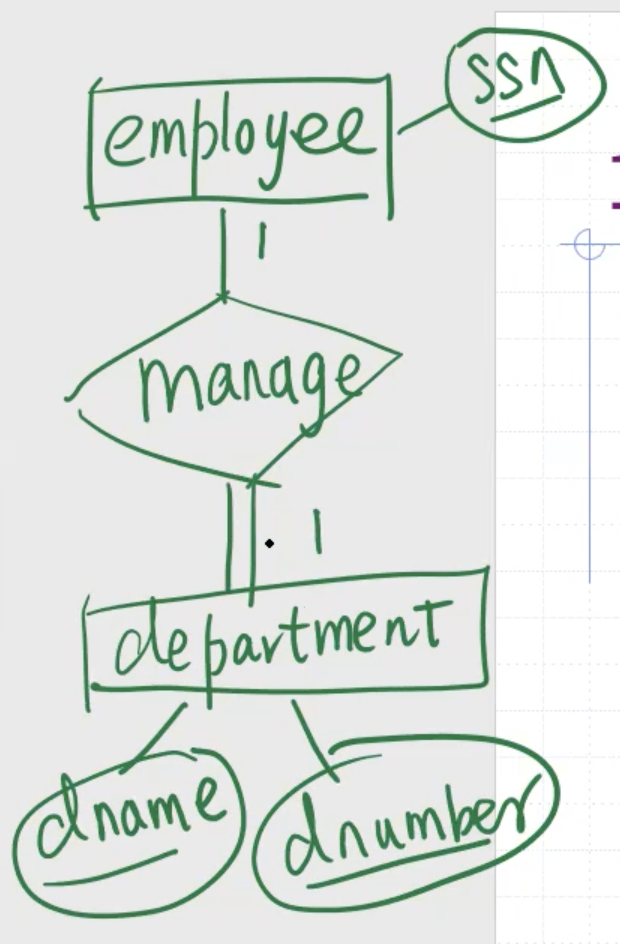 ssn
employee
1
manage
1
department
dname
dnumber